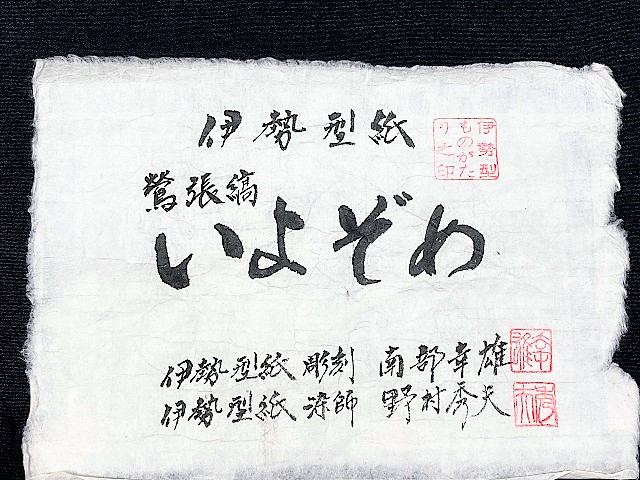 伊勢型紙
伊勢型ものがたり之印
鶯張縞
いよぞめ
伊勢型紙 彫刻 南部幸雄
伊勢型紙 染師 野村秀夫